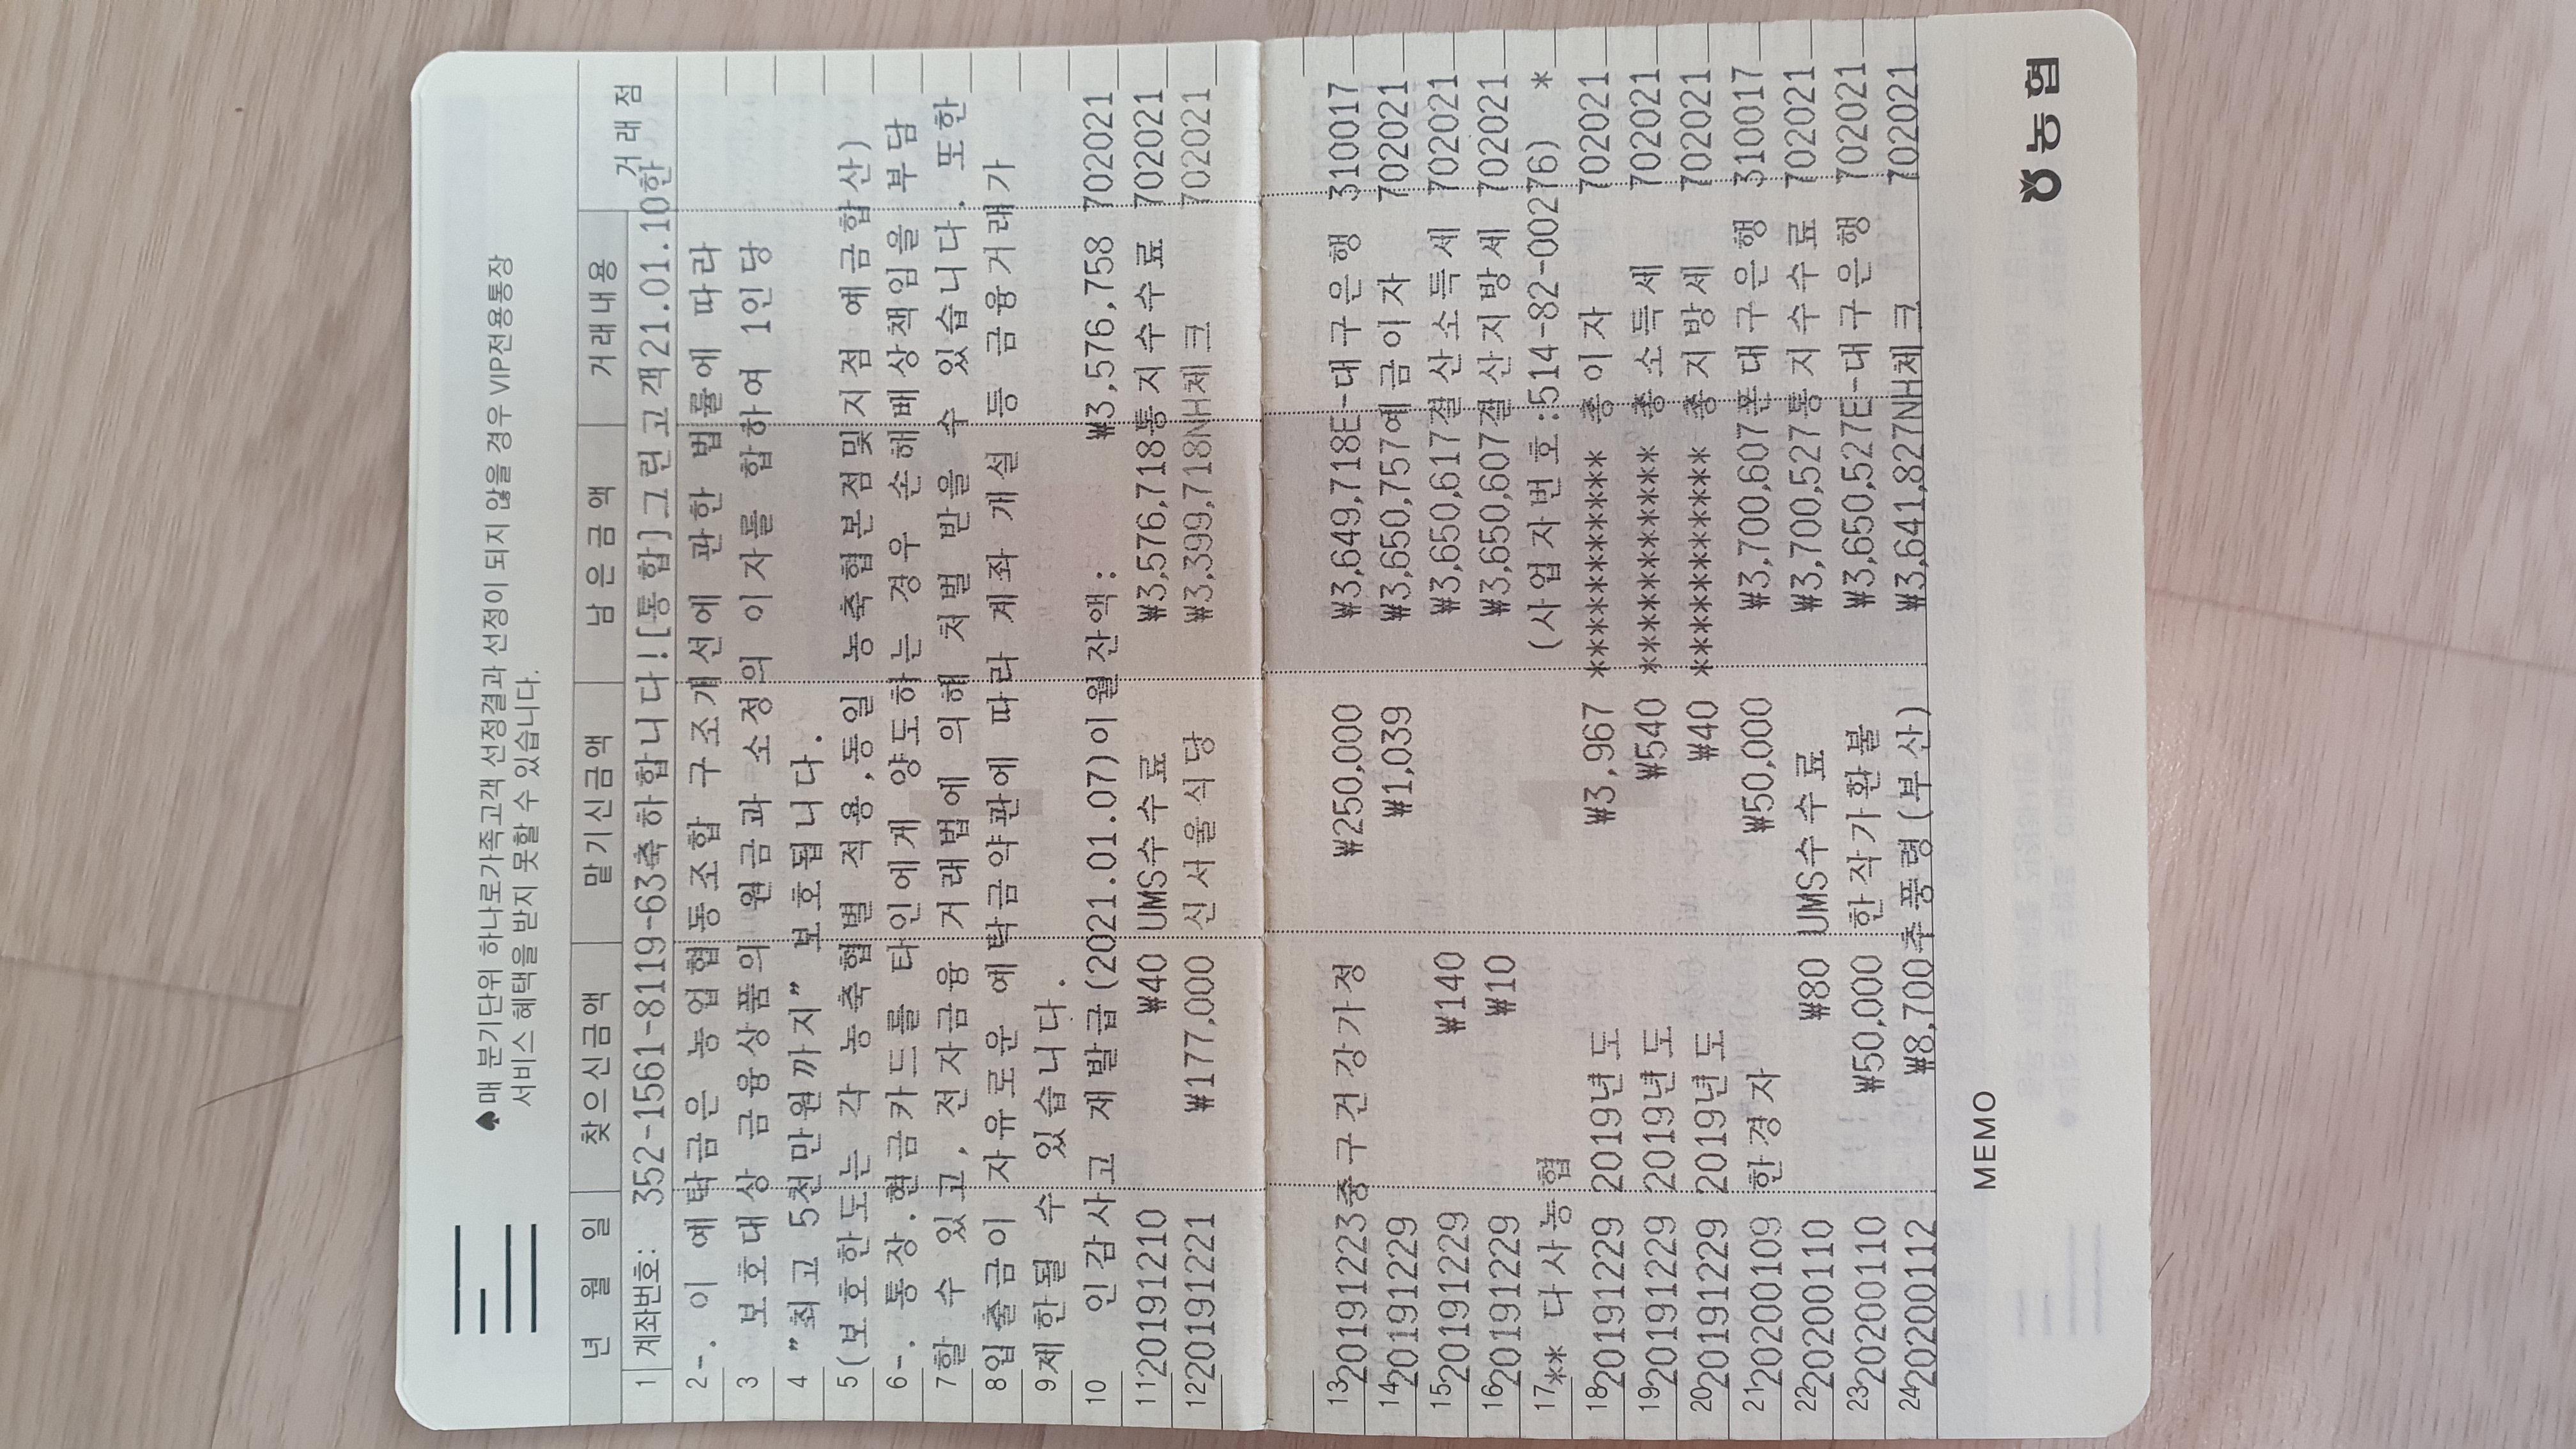 ♠매 분기단위 하나로가족고객 선정결과 선정이 되지 않을 경우 VIP전용통장
서비스 혜택을 받지 못할 수 있습니다.
년 월 일 찾으신금액 맡기신금액 남은금액 거래내용 거래점
1 계좌번호: 352-1561-8119-63축하합니다![통합]그린고객21.01.10한
2-. 이 예탁금은 농업협동조합 구조개선에 관한 법률에 따라
3 보호대상 금융상품의 원금과 소정의 이자를 합하여 1인당
4 "최고 5천만원까지" 보호됩니다.
5 (보호한도는 각 농축협별 적용,동일 농축협본점및지점 예금합산)
6-. 통장.현금카드를 타인에게 양도하는 경우 손해배상책임을 부담
7할 수 있고, 전자금융 거래법에 의해 처벌 받을 수 있습니다. 또한
8입출금이 자유로운 예탁금약관에 따라 계좌 개설 등 금융거래가
9제한될 수 있습니다.
10 인감사고 재발급(2021.01.07)이월잔액: ₩3,576,758 702021
11 20191210 ₩40 UMS수수료 ₩3,576,718통지수수료 702021
12 20191221 ₩177,000 신서울식당 ₩3,399,718NH체크 702021
13 20191223중구건강가정 ₩250,000 ₩3,649,718E-대구은행 310017
14 20191229 ₩1,039 ₩3,650,757예금이자 702021
15 20191229 ₩140 ₩3,650,617결산소득세 702021
16 20191229 ₩10 ₩3,650,607결산지방세 702021
17 ** 다사농협 (사업자번호:514-82-00276) *
18 20191229 2019년도 ₩3,967 *********** 총이자 702021
19 20191229 2019년도 ₩540 *********** 총소득세 702021
20 20191229 2019년도 ₩40 *********** 총지방세 702021
21 20200109 한경자 ₩50,000 ₩3,700,607폰대구은행 310017
22 20200110 ₩80 UMS수수료 ₩3,700,527통지수수료 702021
23 20200110 ₩50,000 한작가환불 ₩3,650,527E-대구은행 702021
24 20200112 ₩8,700추풍령(부산) ₩3,641,827NH체크 702021
MEMO
농협